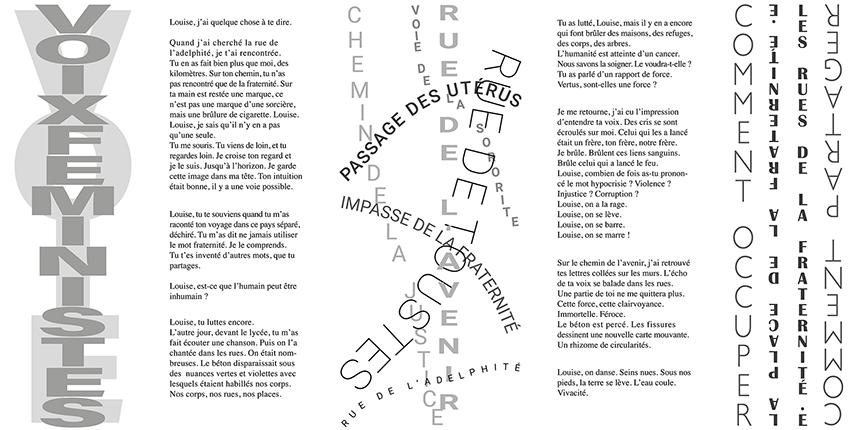 VOIXFEMINISTES
Louise, j'ai quelque chose à te dire.
Quand j'ai cherché la rue de
l'adelphité, je t'ai rencontrée.
Tu en as fait bien plus que moi, des
kilomètres. Sur ton chemin, tu n'as
pas rencontré que de la fraternité. Sur
ta main est restée une marque, ce
n'est pas une marque d'une sorcière,
mais une brûlure de cigarette. Louise.
Louise, je sais qu'il n'y en a pas
qu'une seule.
Tu me souris. Tu viens de loin, et tu
regardes loin. Je croise ton regard et
je le suis. Jusqu'à l'horizon. Je garde
cette image dans ma tête. Ton intuition
était bonne, il y a une voie possible.
Louise, tu te souviens quand tu m'as
raconté ton voyage dans ce pays séparé,
déchiré. Tu m'as dit ne jamais utiliser
le mot fraternité. Je le comprends.
Tu t'es inventé d'autres mots, que tu
partages.
Louise, est-ce que l'humain peut être
inhumain ?
Louise, tu luttes encore.
L'autre jour, devant le lycée, tu m'as
fait écouter une chanson. Puis on l'a
chantée dans les rues. On était nom-
breuses. Le béton disparaissait sous
des nuances vertes et violettes avec
lesquels étaient habillés nos corps.
Nos corps, nos rues, nos places.
CHEMIN DE LA JUSTICE
VOIE DE LA SORORITE
RUE DE L'AVENIR
RUE DE TOUSTES
PASSAGE DES UTÉRUS
IMPASSE DE LA FRATERNITÉ
RUE DE L'ADELPHITÉ
Tu as lutté, Louise, mais il y en a encore
qui font brûler des maisons, des refuges,
des corps, des arbres.
L'humanité est atteinte d'un cancer.
Nous savons la soigner. Le voudra-t-elle ?
Tu as parlé d'un rapport de force.
Vertus, sont-elles une force ?
Je me retourne, j'ai eu l'impression
d'entendre ta voix. Des cris se sont
écroulés sur moi. Celui qui les a lancé
était un frère, ton frère, notre frère.
Je brûle. Brûlent ces liens sanguins.
Brûle celui qui a lancé le feu.
Louise, combien de fois as-tu pronon-
cé le mot hypocrisie ? Violence ?
Injustice ? Corruption ?
Louise, on a la rage.
Louise, on se lève.
Louise, on se barre.
Louise, on se marre !
Sur le chemin de l'avenir, j'ai retrouvé
tes lettres collées sur les murs. L'écho
de ta voix se balade dans les rues.
Une partie de toi ne me quittera plus.
Cette force, cette clairvoyance.
Immortelle. Féroce.
Le béton est percé. Les fissures
dessinent une nouvelle carte mouvante.
Un rhizome de circularités.
Louise, on danse. Seins nues. Sous nos
pieds, la terre se lève. L'eau coule.
Vivacité.
COMMENT OCCUPER
LA PLACE DE LA FRATERNITÉ·E
LES RUES DE LA FRATERNITÉ·E
COMMENT PARTAGER